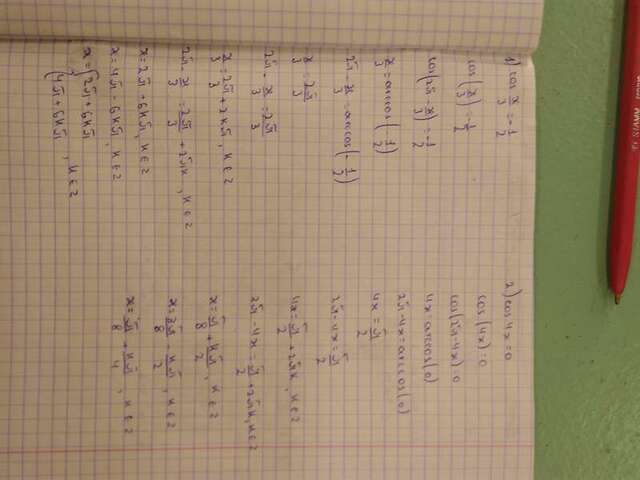 1) cos x/3 = -1/2
cos(x/3) = -1/2
cos(2π - x/3) = -1/2
x/3 = arccos(-1/2)
2π - x/3 = arccos(-1/2)
x/3 = 2π/3
2π - x/3 = 2π/3
x/3 = 2π/3 + 2kπ, k ∈ Z
2π - x/3 = 2π/3 + 2πk, k ∈ Z
x = 2π + 6kπ, k ∈ Z
x = 4π - 6kπ, k ∈ Z
x = {2π + 6kπ
{4π + 6kπ, k ∈ Z
2) cos 4x = 0
cos(4x) = 0
cos(2π - 4x) = 0
4x = arccos(0)
2π - 4x = arccos(0)
4x = π/2
2π - 4x = π/2
4x = π/2 + 2πk, k ∈ Z
2π - 4x = π/2 + 2πk, k ∈ Z
x = π/8 + kπ/2, k ∈ Z
x = 3π/8 - kπ/2, k ∈ Z
x = π/8 + kπ/4, k ∈ Z